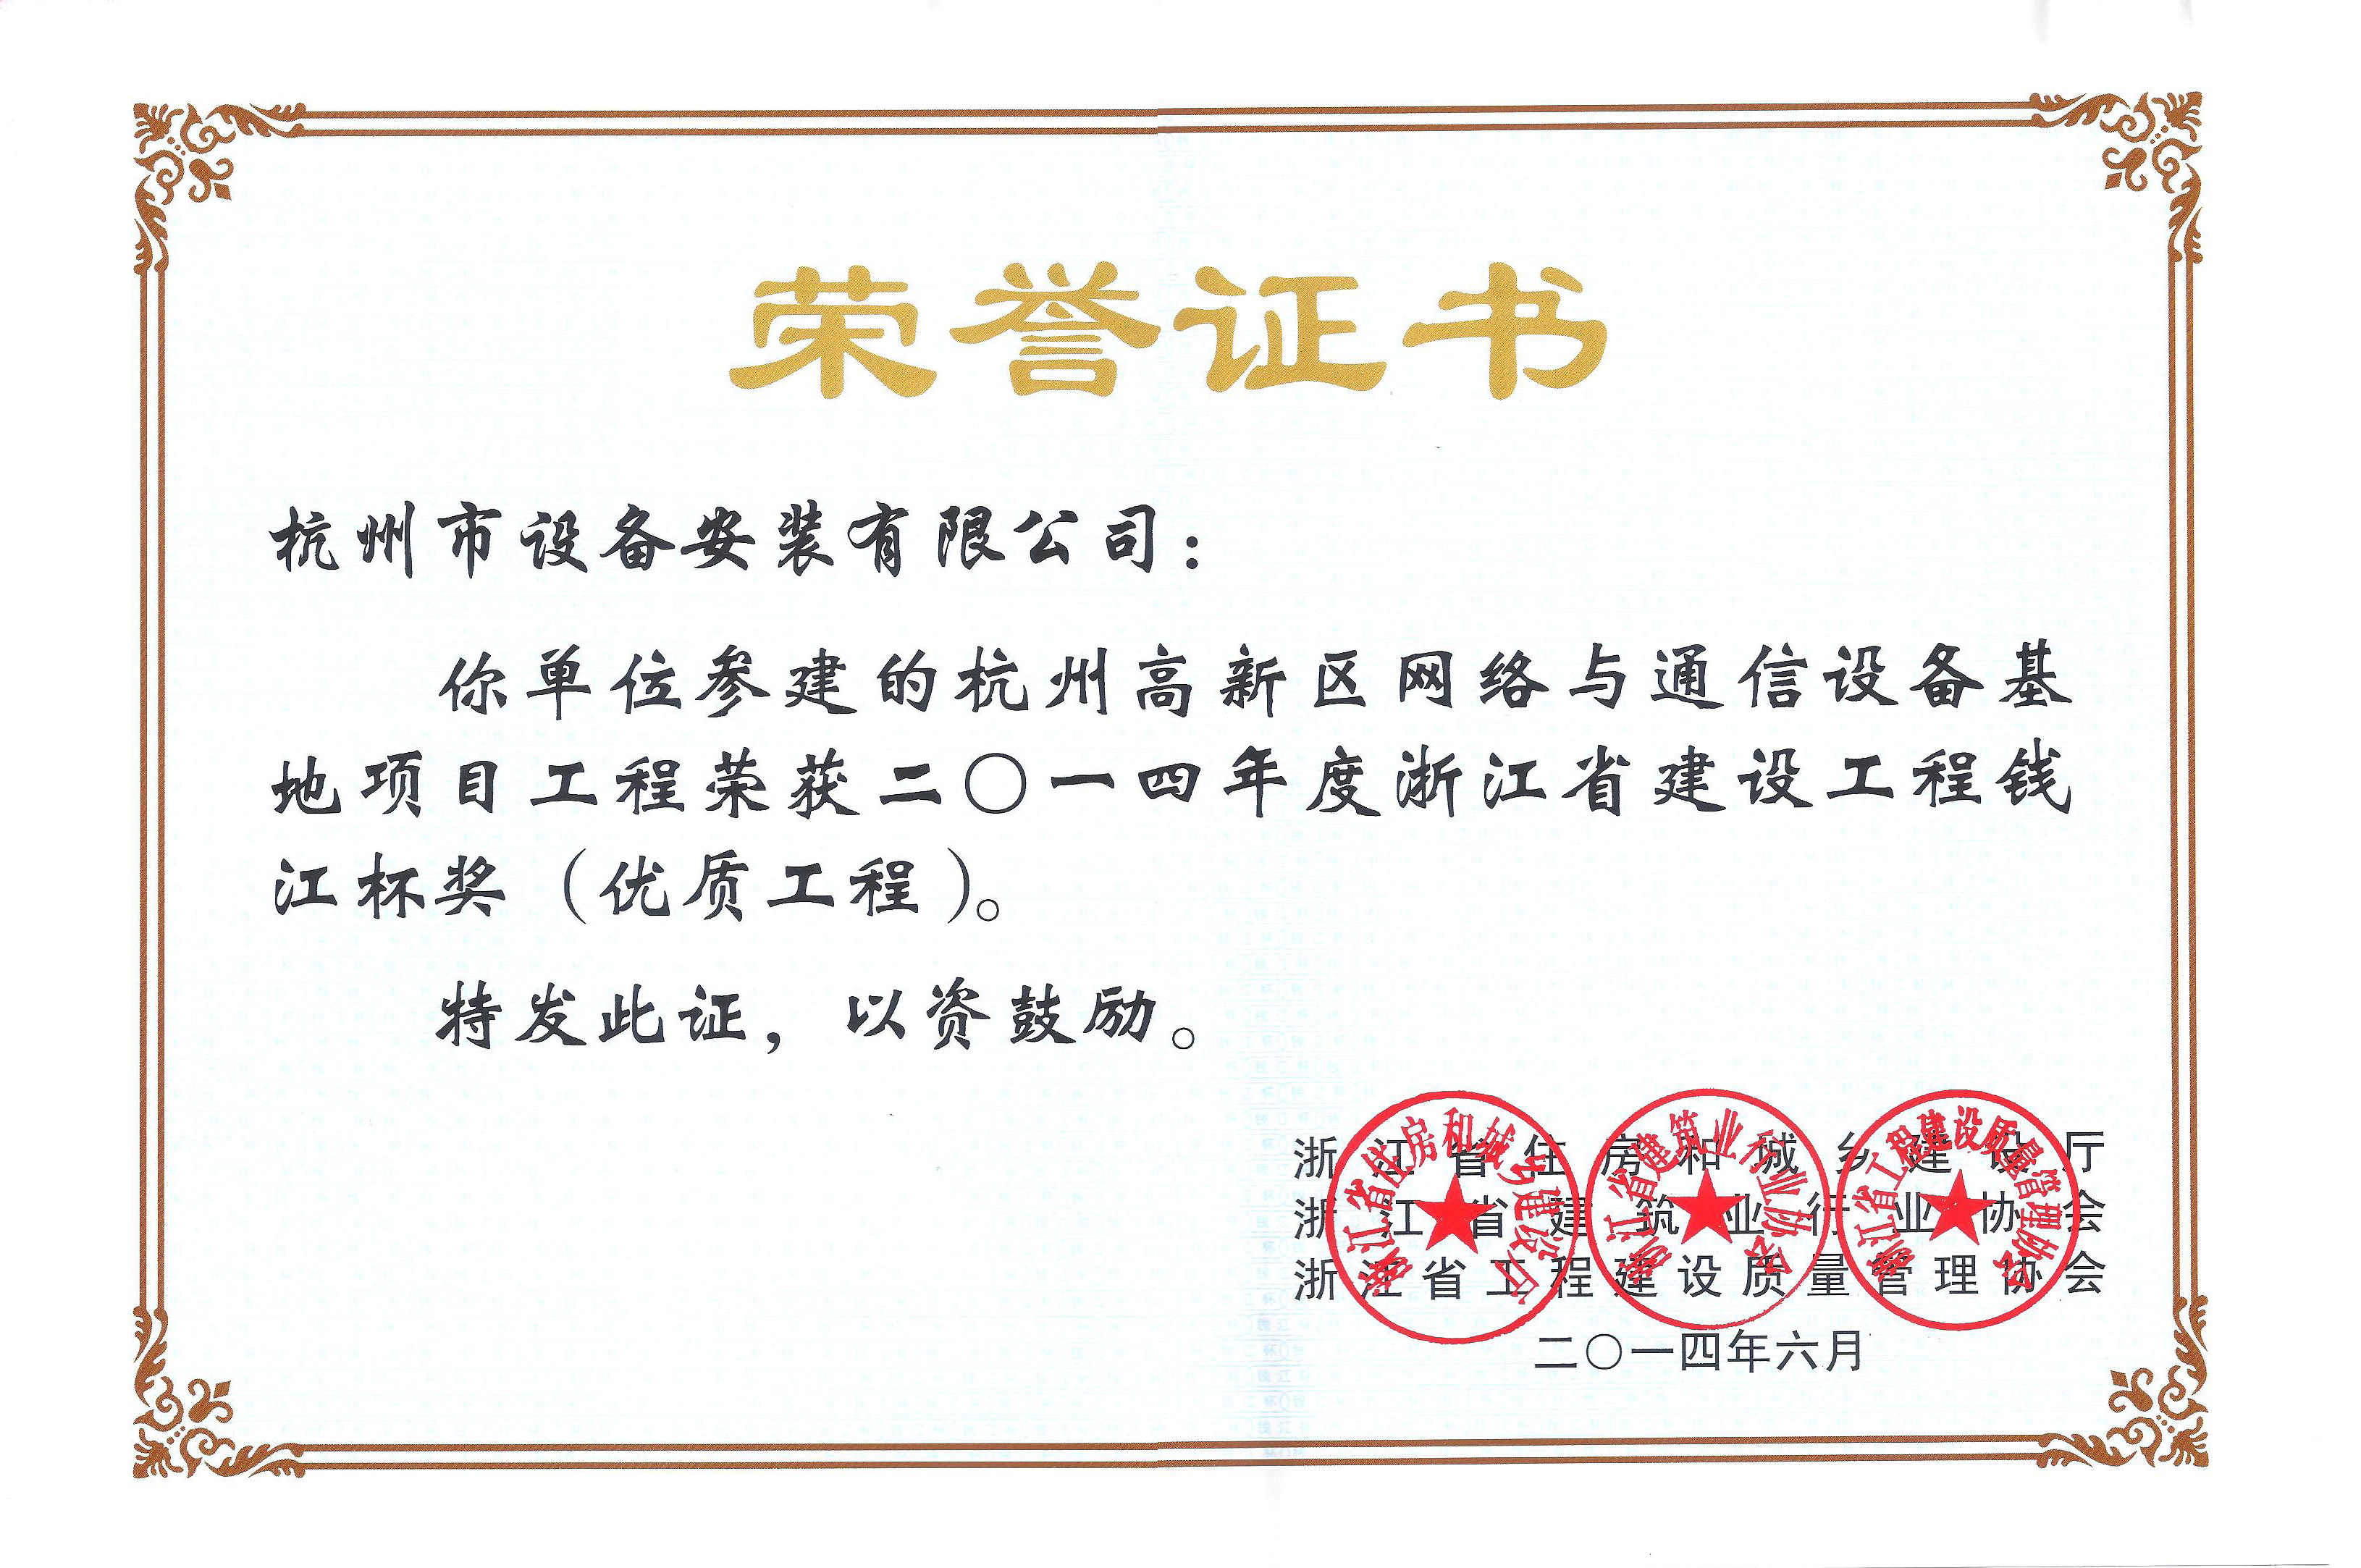 荣誉证书
杭州市设备安装有限公司：
你单位参建的杭州高新区网络与通信设备基
地项目工程荣获二〇一四年度浙江省建设工程钱
江杯奖（优质工程）。
特发此证，以资鼓励。
浙江省住房和城乡建设厅
浙江省建筑业行业协会
浙江省工程建设质量管理协会
二〇一四年六月
浙江省住房和城乡建设厅
浙江省建筑业行业协会
浙江省工程建设质量管理协会